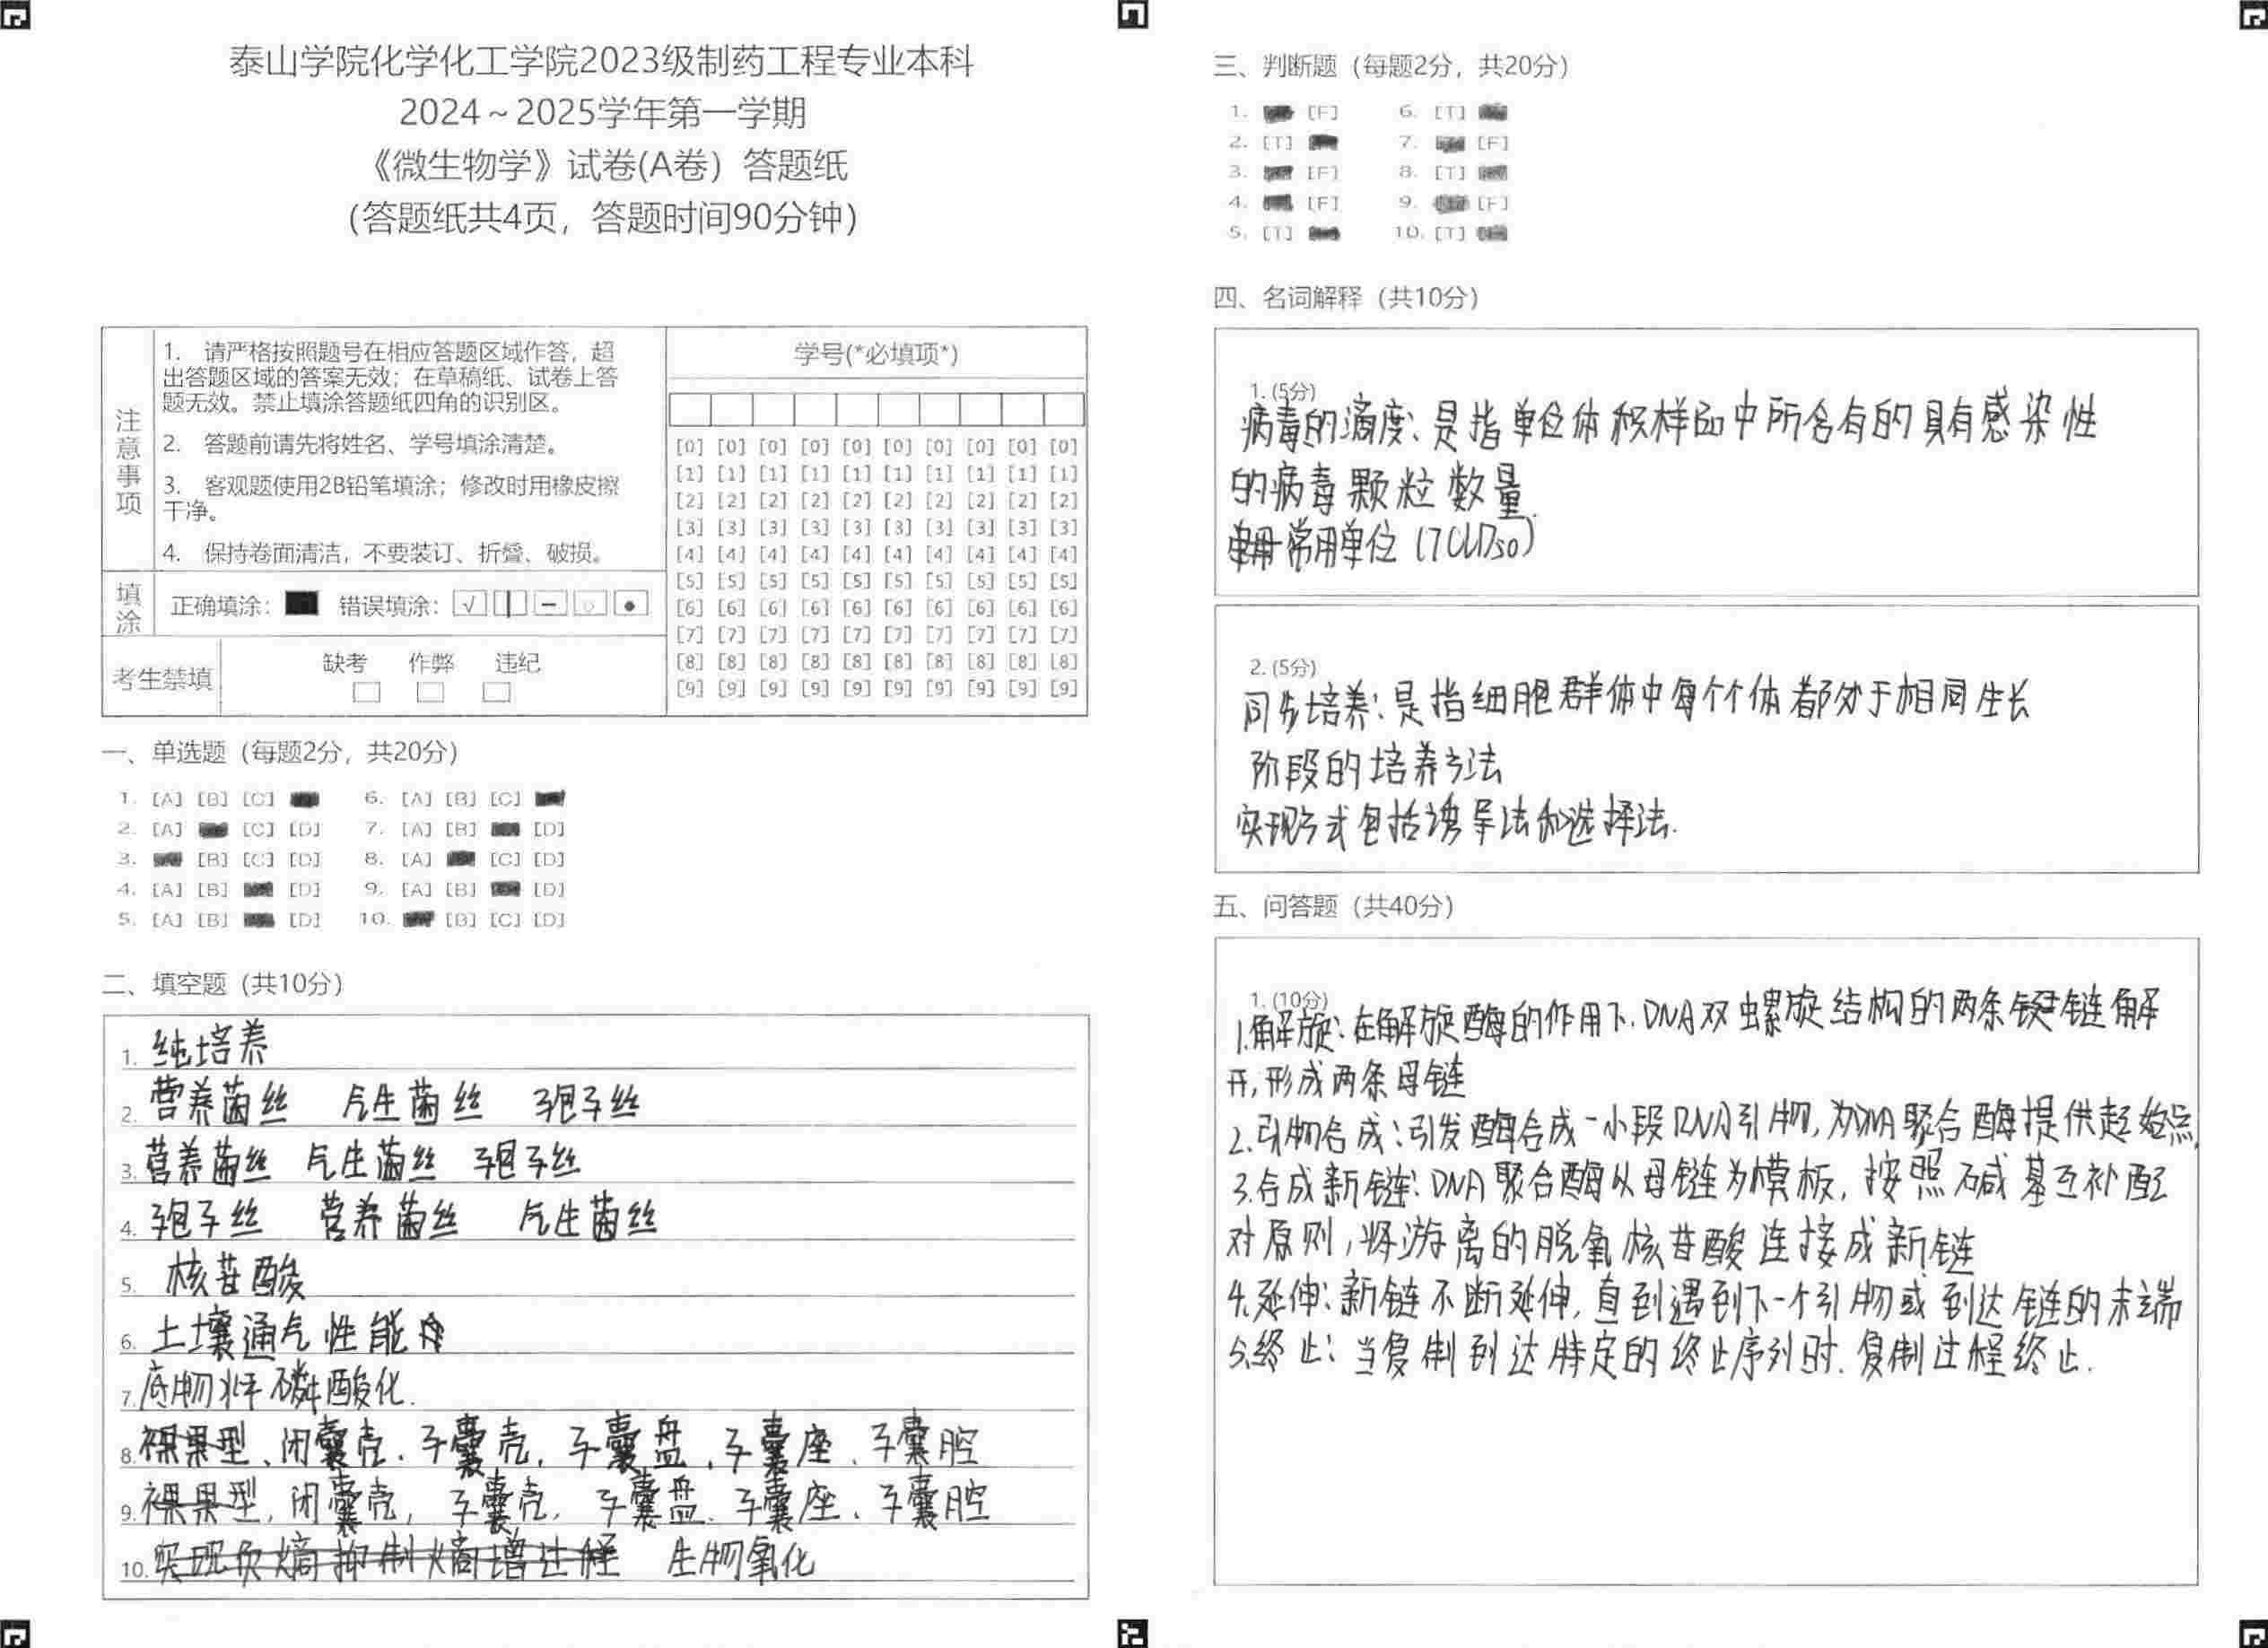 泰山学院化学化工学院2023级制药工程专业本科
2024～2025学年第一学期
《微生物学》试卷(A卷）答题纸
（答题纸共4页，答题时间90分钟）
注意事项
1. 请严格按照题号在相应答题区域作答，超
出答题区域的答案无效；在草稿纸、试卷上答
题无效。禁止填涂答题纸四角的识别区。
2. 答题前请先将姓名、学号填涂清楚。
3. 客观题使用2B铅笔填涂；修改时用橡皮擦
干净。
4. 保持卷面清洁，不要装订、折叠、破损。
填涂 正确填涂： 错误填涂：
考生禁填 缺考 作弊 违纪
学号(*必填项*)
[0] [0] [0] [0] [0] [0] [0] [0] [0] [0]
[1] [1] [1] [1] [1] [1] [1] [1] [1] [1]
[2] [2] [2] [2] [2] [2] [2] [2] [2] [2]
[3] [3] [3] [3] [3] [3] [3] [3] [3] [3]
[4] [4] [4] [4] [4] [4] [4] [4] [4] [4]
[5] [5] [5] [5] [5] [5] [5] [5] [5] [5]
[6] [6] [6] [6] [6] [6] [6] [6] [6] [6]
[7] [7] [7] [7] [7] [7] [7] [7] [7] [7]
[8] [8] [8] [8] [8] [8] [8] [8] [8] [8]
[9] [9] [9] [9] [9] [9] [9] [9] [9] [9]
一、单选题（每题2分，共20分）
1. [A] [B] [C] 6. [A] [B] [C]
2. [A] [C] [D] 7. [A] [B] [D]
3. [B] [C] [D] 8. [A] [C] [D]
4. [A] [B] [D] 9. [A] [B] [D]
5. [A] [B] [D] 10. [B] [C] [D]
二、填空题（共10分）
1. 纯培养
2. 营养菌丝 气生菌丝 孢子丝
3. 营养菌丝 气生菌丝 孢子丝
4. 孢子丝 营养菌丝 气生菌丝
5. 核苷酸
6. 土壤通气性能
7. 底物水平磷酸化.
8. 裸果型、闭囊壳、子囊壳、子囊盘、子囊座、子囊腔
9. 裸果型，闭囊壳，子囊壳，子囊盘、子囊座、子囊腔
10. 实现负熵抑制熵增过程 生物氧化
三、判断题（每题2分，共20分）
1. [F] 6. [T]
2. [T] 7. [F]
3. [F] 8. [T]
4. [F] 9. [F]
5. [T] 10. [T]
四、名词解释（共10分）
1. (5分)
病毒的滴度：是指单位体积样品中所含有的具有感染性
的病毒颗粒数量.
常用单位
2. (5分)
同步培养：是指细胞群体中每个个体都处于相同生长
阶段的培养方法
实现方式包括诱导法和选择法.
五、问答题（共40分）
1. (10分)
1.解旋：在解旋酶的作用下.DNA双螺旋结构的两条链解
开,形成两条母链
2.引物合成：引发酶合成一小段RNA引物,为DNA聚合酶提供起始点,
3.合成新链：DNA聚合酶以母链为模板，按照碱基互补配
对原则,将游离的脱氧核苷酸连接成新链
4.延伸：新链不断延伸,直到遇到下一个引物或到达链的末端
5.终止：当复制到达特定的终止序列时.复制过程终止.